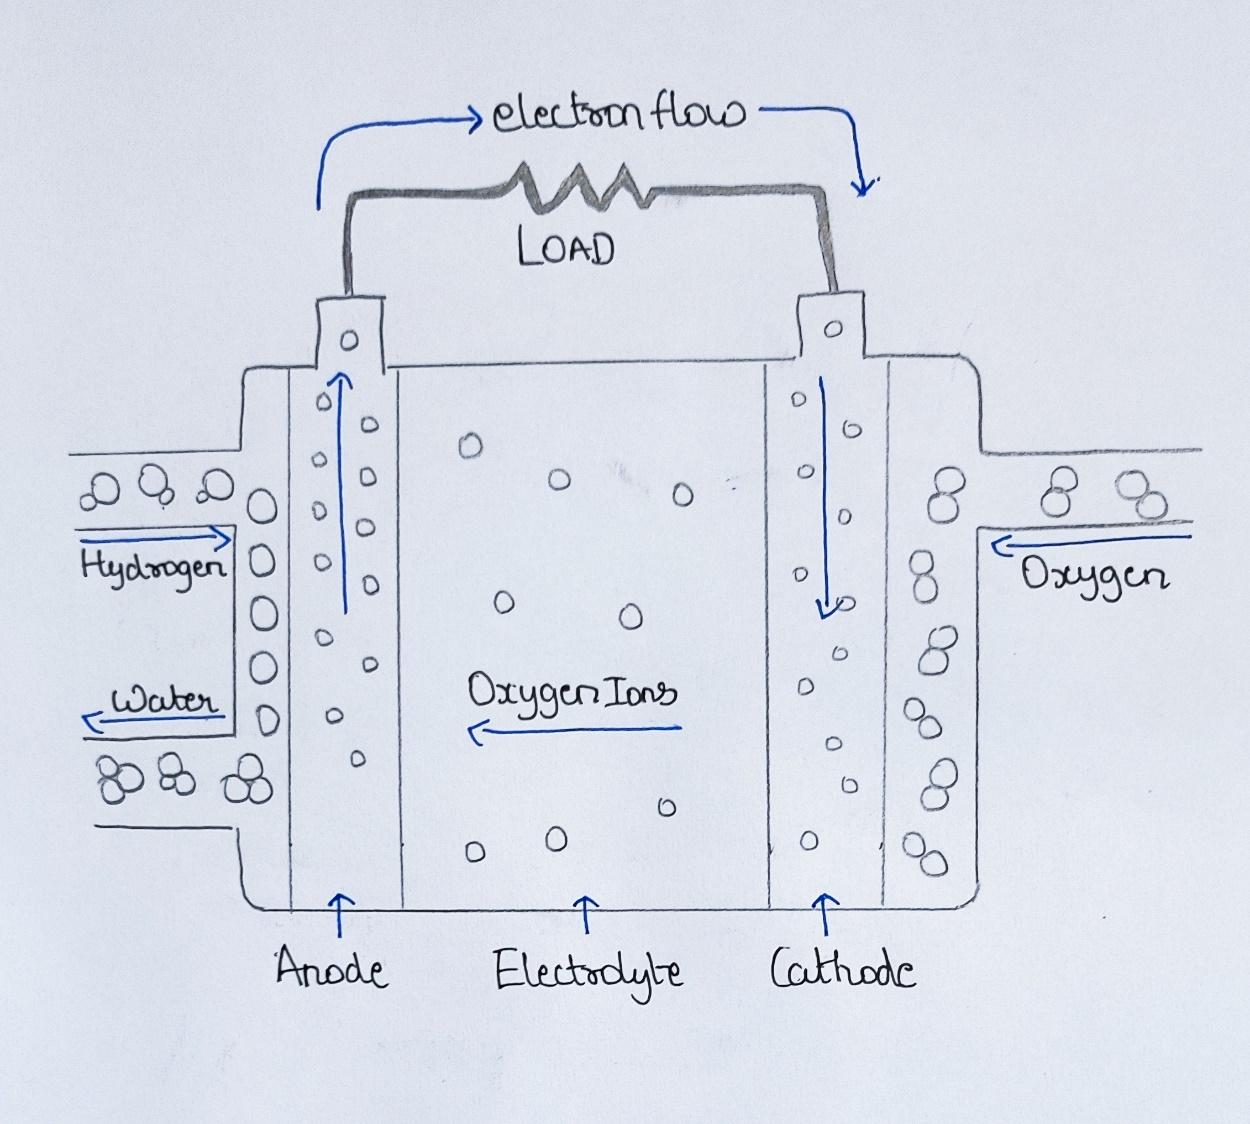 electron flow
LOAD
Hydrogen
Oxygen
Water
Oxygen Ions
Anode
Electrolyte
Cathode